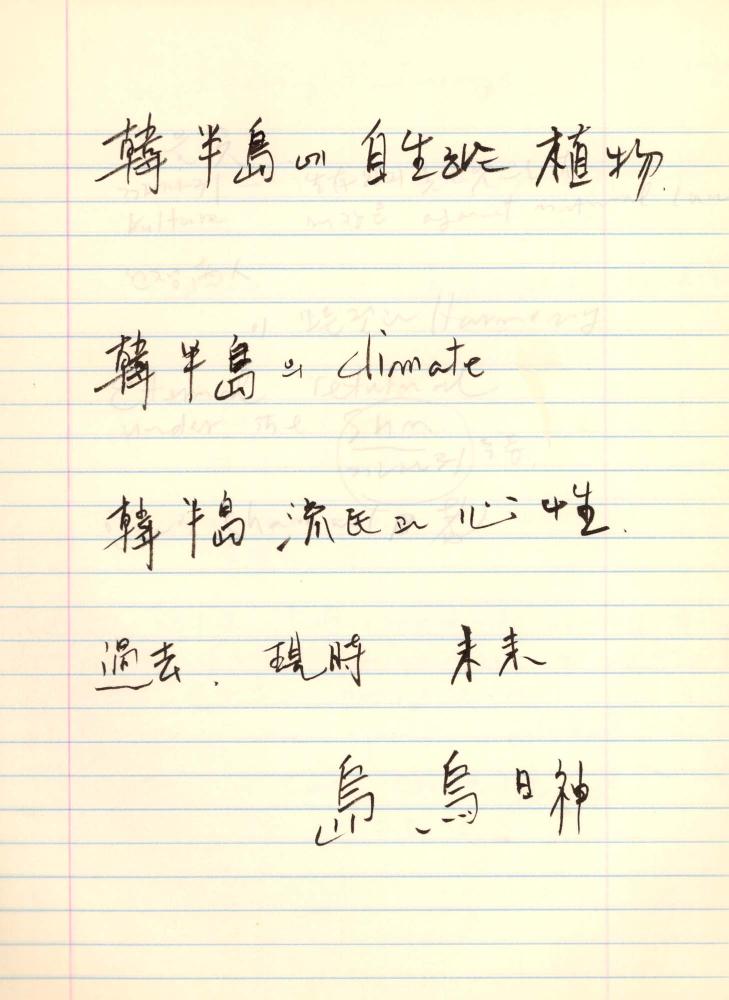 韓半島에 自生하는 植物.
韓半島의 climate
韓半島 流民의 心性.
過去. 現時 未来
島, 鳥 日神